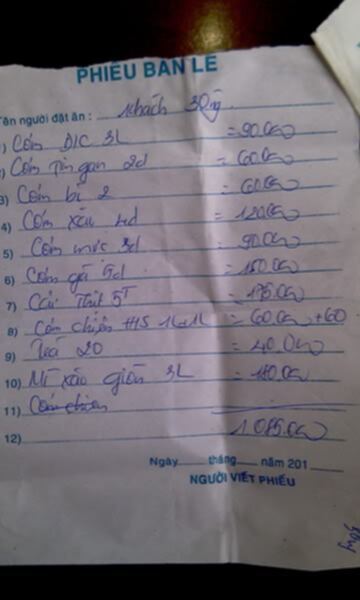 PHIẾU BÁN LẺ
Tên người đặt ăn : Khách 30ng
1) Cơm DC 3L = 90.000
2) Cơm Tim gan 2d = 60.000
3) Cơm bì 2 = 60.000
4) Cơm xáu 4d = 120.000
5) Cơm mực 3d = 90.000
6) Cơm gà 5d = 150.000
7) Thịt 5T = 175.000
8) Cơm chiên HS 1L+1L = 60.000+60
9) Trà 20 = 40.000
10) Mì xào giòn 3L = 180.000
11)
12) 1.085.000
Ngày tháng năm 201
NGƯỜI VIẾT PHIẾU